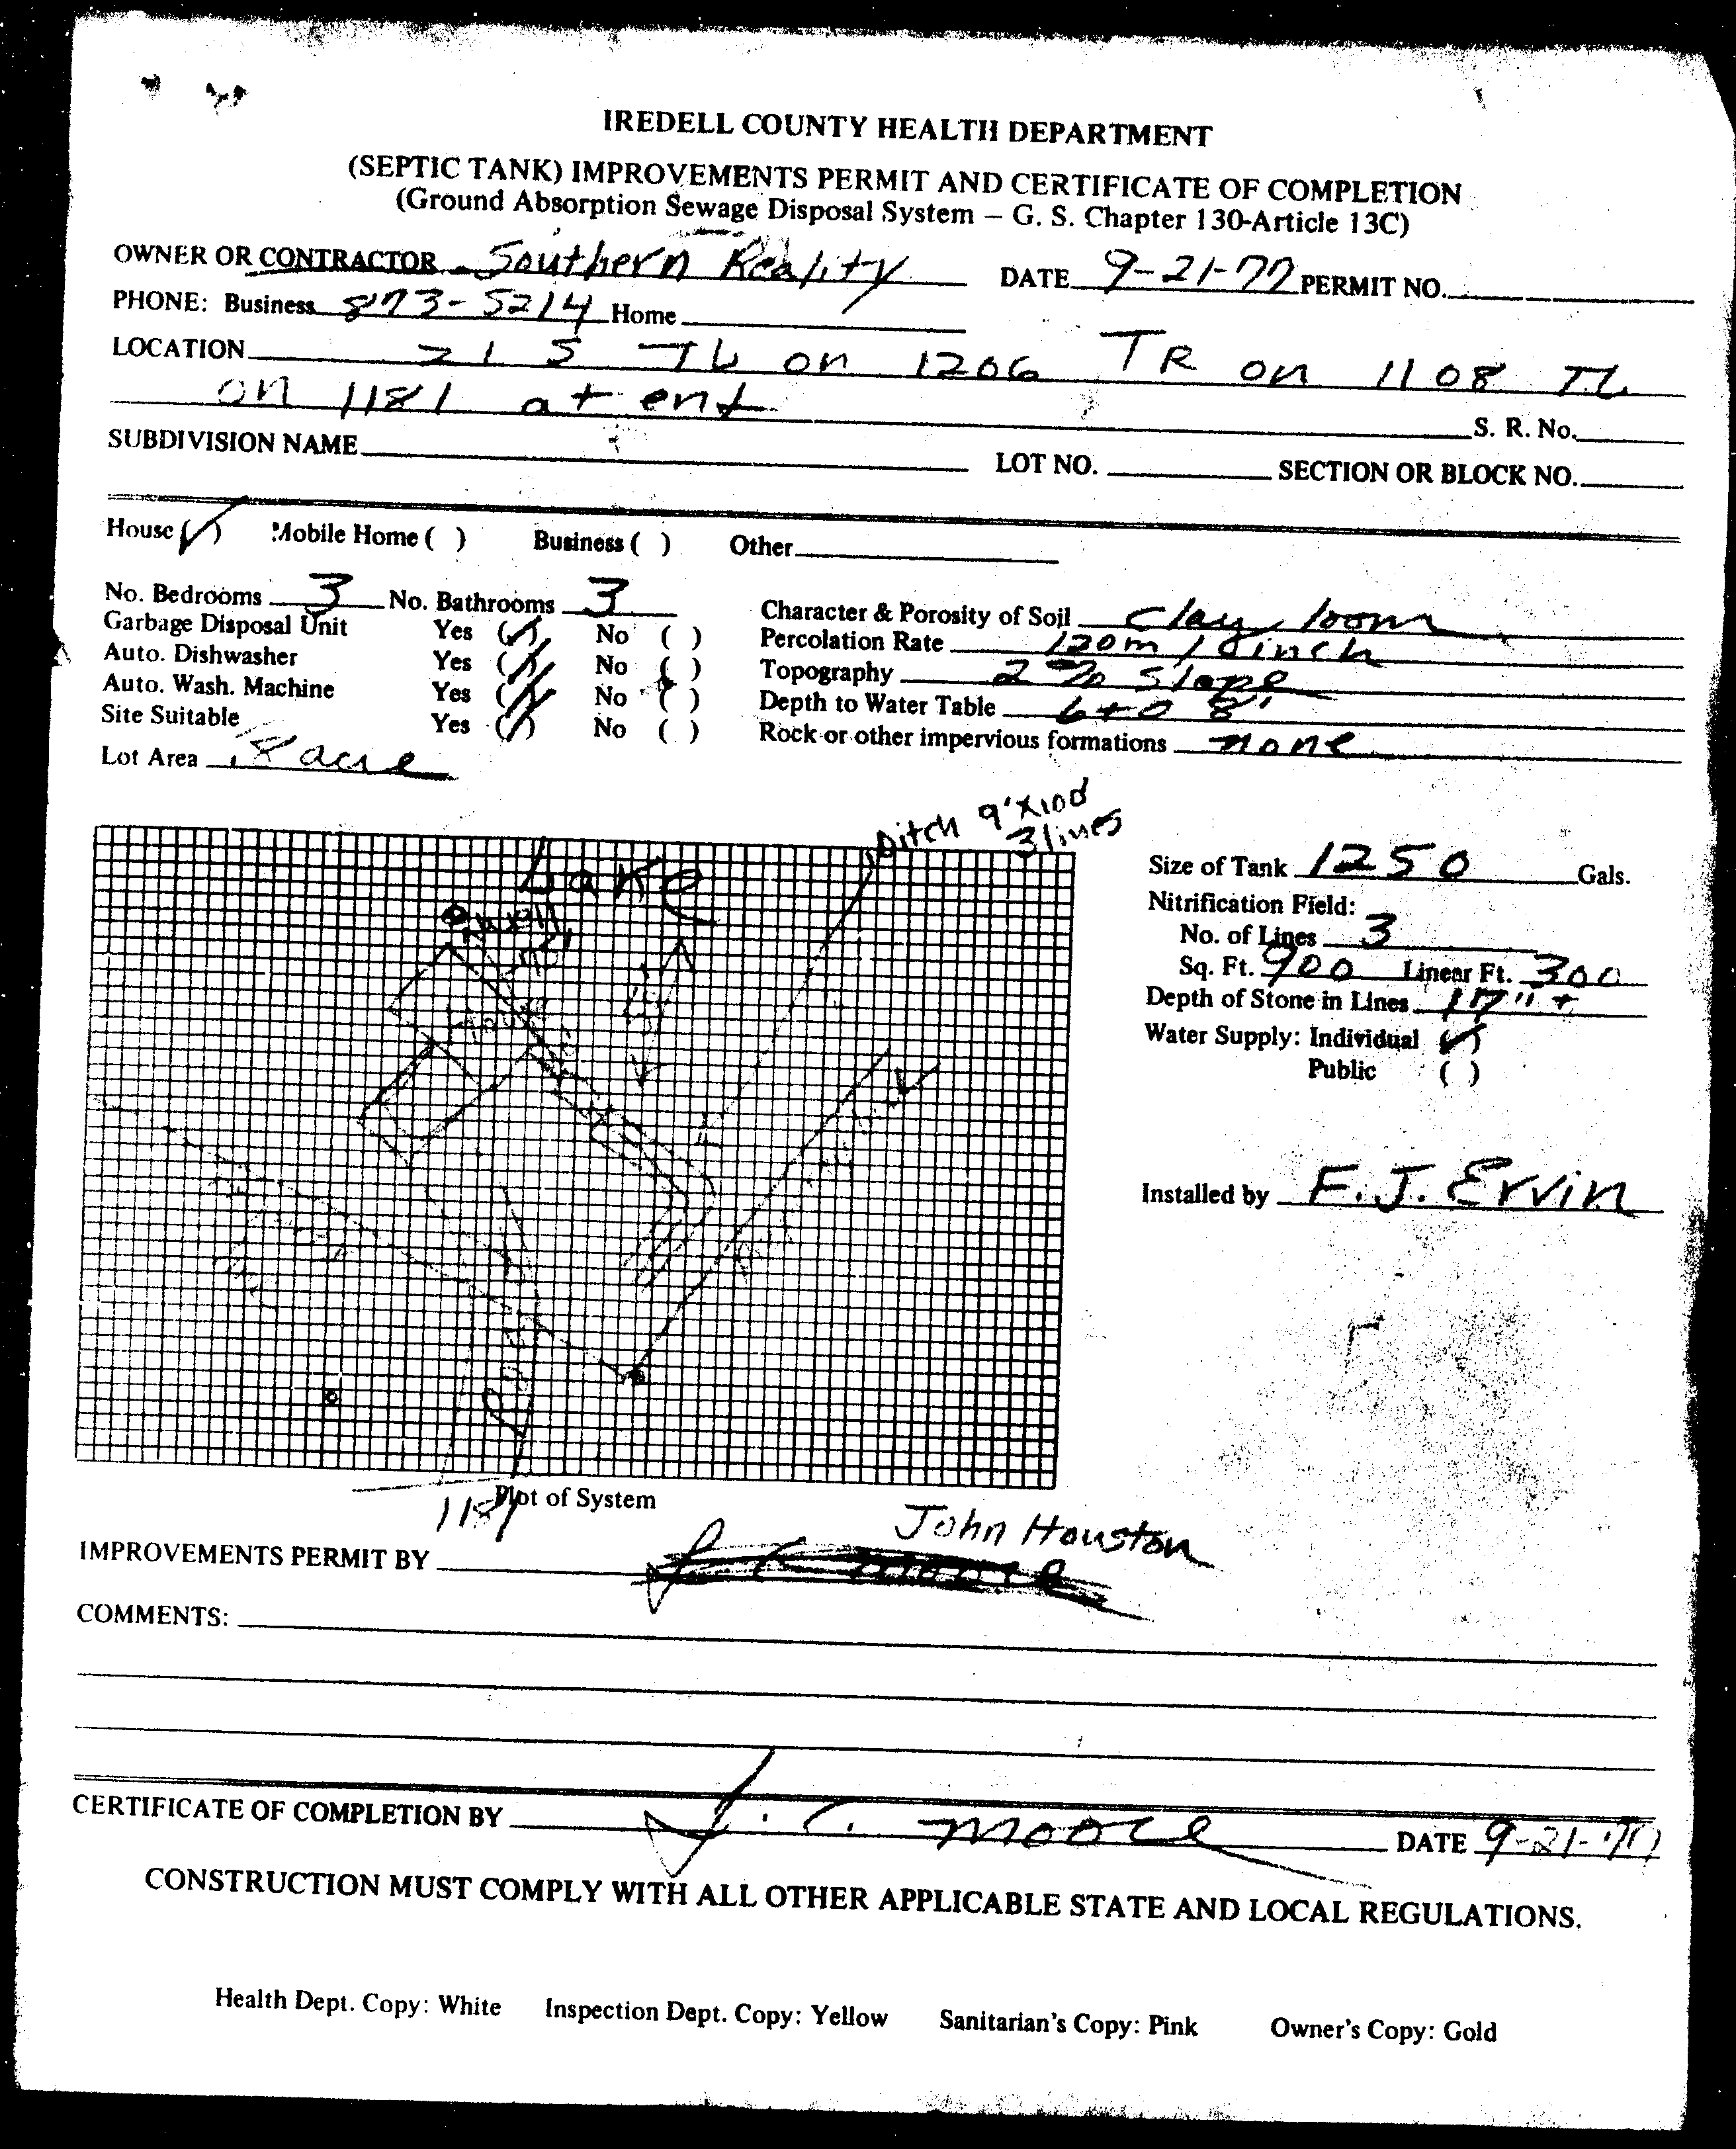 IREDELL COUNTY HEALTH DEPARTMENT
(SEPTIC TANK) IMPROVEMENTS PERMIT AND CERTIFICATE OF COMPLETION
(Ground Absorption Sewage Disposal System – G. S. Chapter 130-Article 13C)
OWNER OR CONTRACTOR Southern Reality DATE 9-21-77 PERMIT NO.
PHONE: Business 873-5214 Home
LOCATION 21 S TL on 1206 TR on 1108 TL
on 1181 at ent
S. R. No.
SUBDIVISION NAME LOT NO. SECTION OR BLOCK NO.
House (✓) Mobile Home ( ) Business ( ) Other
No. Bedrooms 3 No. Bathrooms 3 Character & Porosity of Soil clay loom
Garbage Disposal Unit Yes (✓) No ( ) Percolation Rate 120m / inch
Auto. Dishwasher Yes (✓) No ( ) Topography 2% Slope
Auto. Wash. Machine Yes (✓) No ( ) Depth to Water Table 6 to 8'
Site Suitable Yes (✓) No ( ) Rock or other impervious formations none
Lot Area .8 acre
Ditch 9'X100
3 lines
Lake
Size of Tank 1250 Gals.
Nitrification Field:
No. of Lines 3
Sq. Ft. 900 Linear Ft. 300
Depth of Stone in Lines 17"+
Water Supply: Individual (✓)
Public ( )
Installed by F.J. Ervin
1181
Plot of System
John Houston
IMPROVEMENTS PERMIT BY J C Moore
COMMENTS:
CERTIFICATE OF COMPLETION BY J. C. Moore DATE 9-21-77
CONSTRUCTION MUST COMPLY WITH ALL OTHER APPLICABLE STATE AND LOCAL REGULATIONS.
Health Dept. Copy: White Inspection Dept. Copy: Yellow Sanitarian's Copy: Pink Owner's Copy: Gold